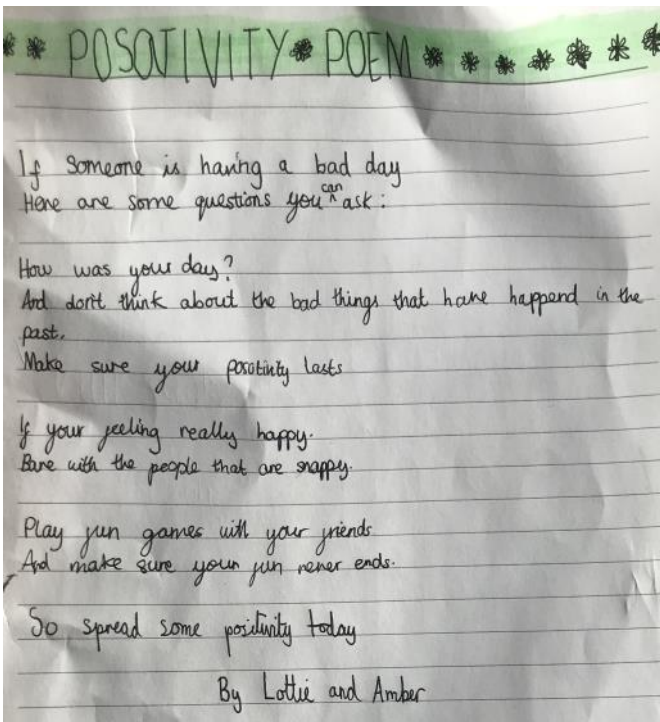 POSOTIVITY POEM
If someone is having a bad day
Here are some questions you can ask:
How was your day?
And don't think about the bad things that have happend in the
past.
Make sure your posotivity lasts
If your feeling really happy.
Bare with the people that are snappy.
Play fun games with your friends
And make sure your fun never ends.
So spread some positivity today
By Lottie and Amber